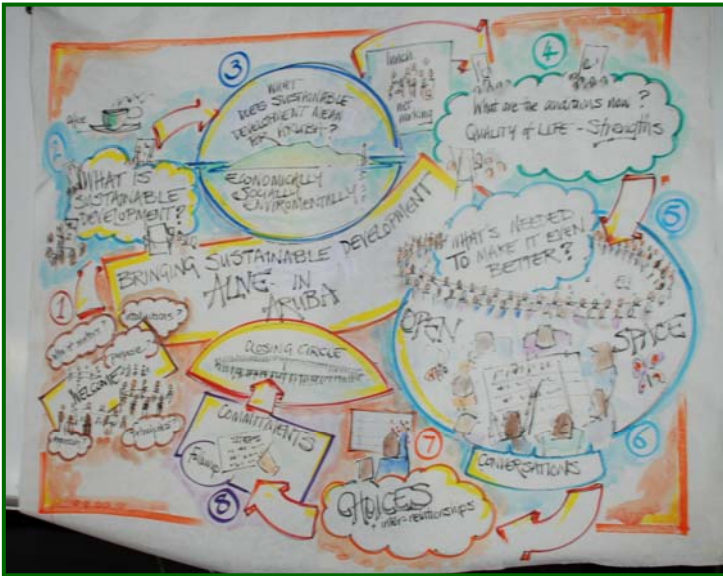 BRINGING SUSTAINABLE DEVELOPMENT
ALIVE IN
ARUBA
1
WELCOME
purpose?
2
WHAT IS
SUSTAINABLE
DEVELOPMENT?
3
WHAT
DOES SUSTAINABLE
DEVELOPMENT MEAN
FOR
ECONOMICALLY
SOCIALLY
ENVIROMENTALLY
lunch
net
working
4
What are the conditions now?
QUALITY of LIFE - Strengths
5
WHAT'S NEEDED
TO MAKE IT EVEN
BETTER?
OPEN
SPACE
6
CONVERSATIONS
7
CHOICES
+ inter-relationships
8
COMMITMENTS
Followup
CLOSING CIRCLE